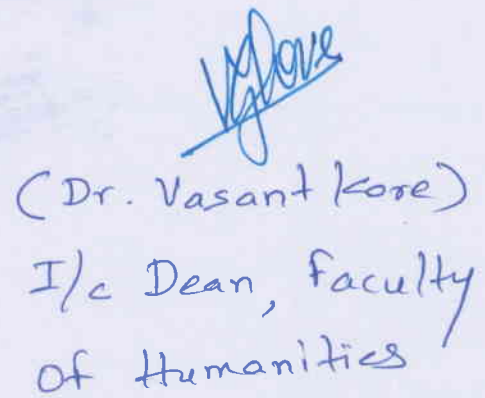 (Dr. Vasant Kore)
I/c Dean, Faculty
of Humanities